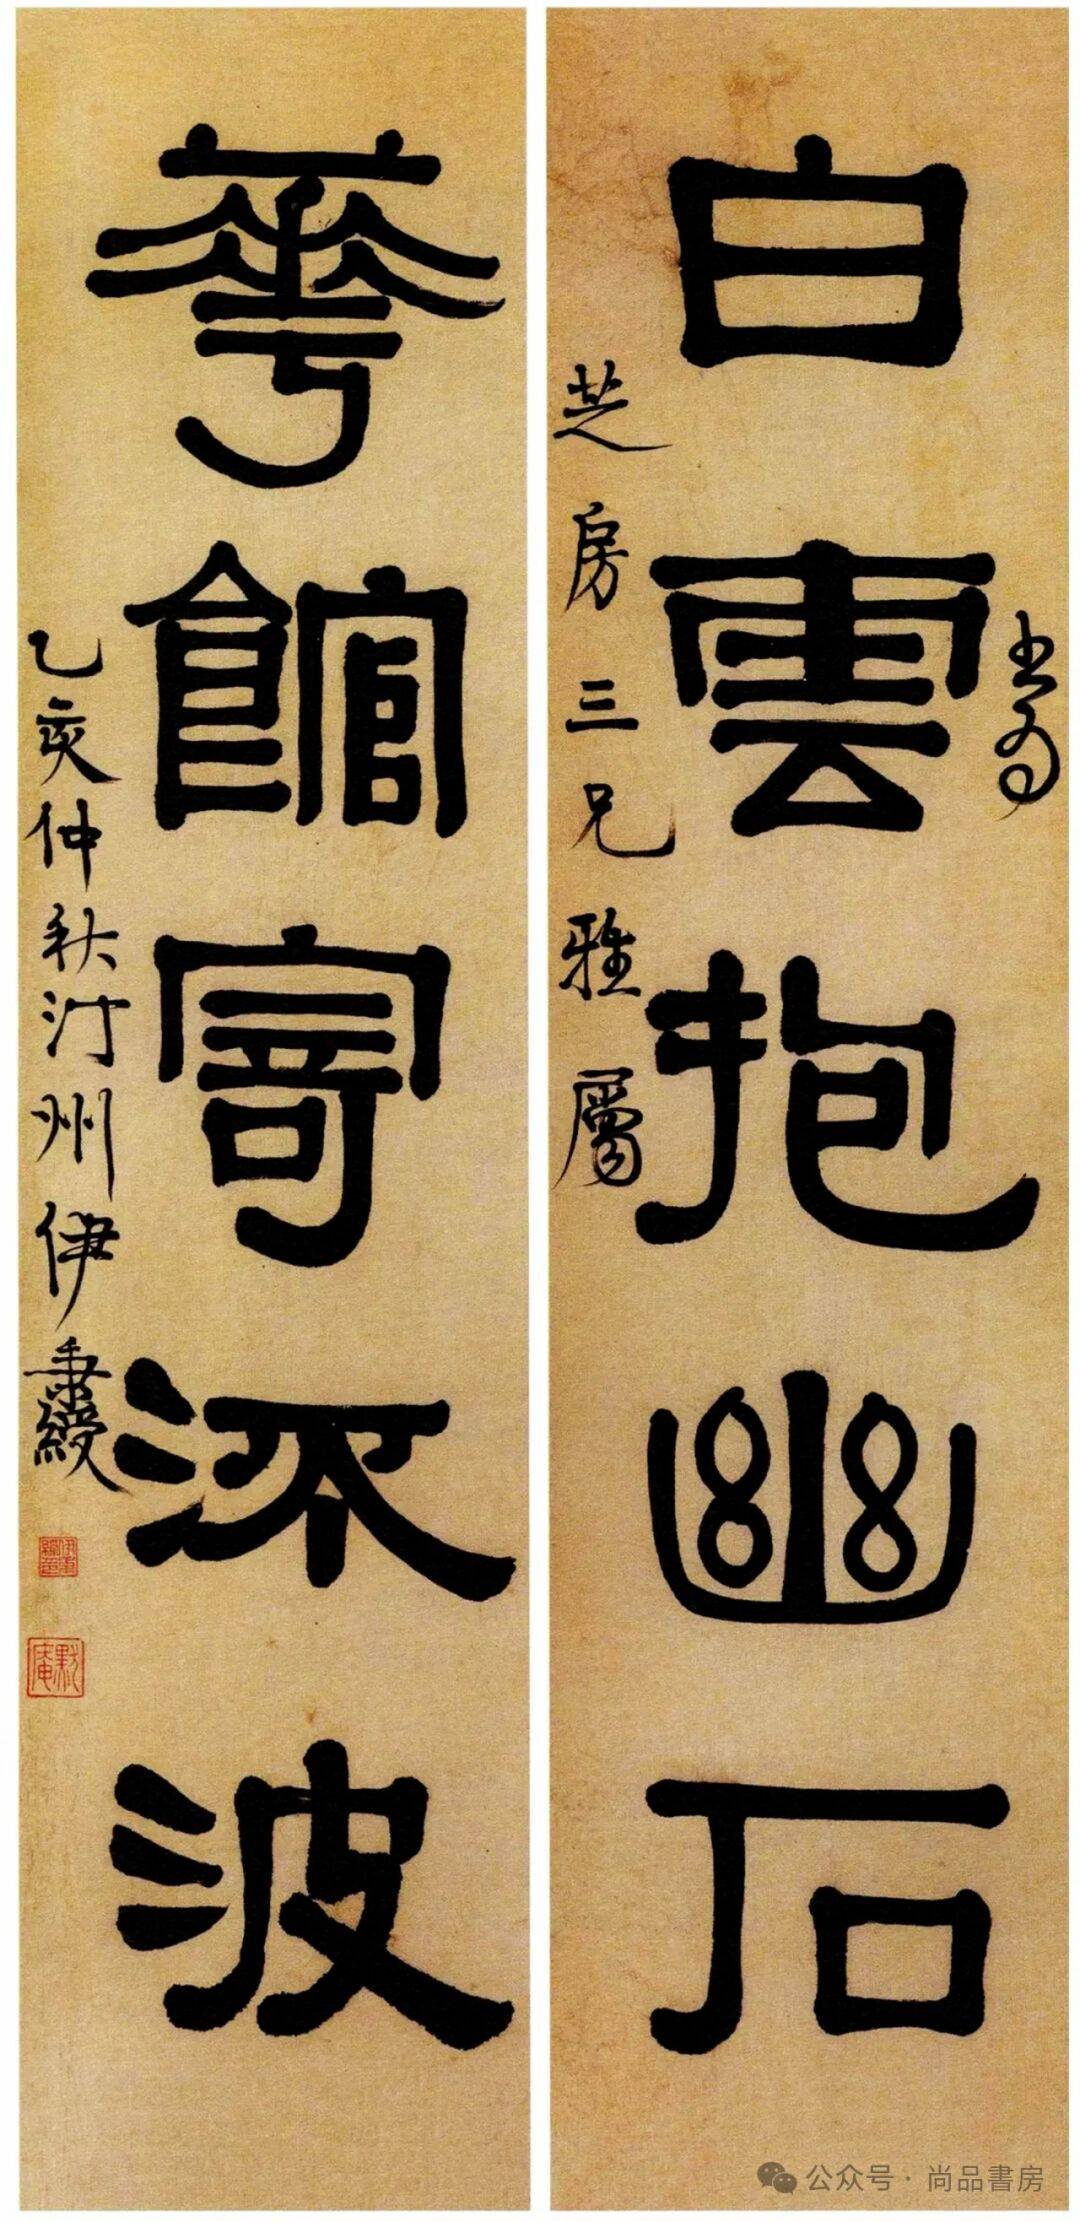 白雲抱幽石
書為
芝房三兄雅屬
華館寄流波
乙亥仲秋汀州伊秉綬
伊秉綬印
默庵
公众号·尚品書房